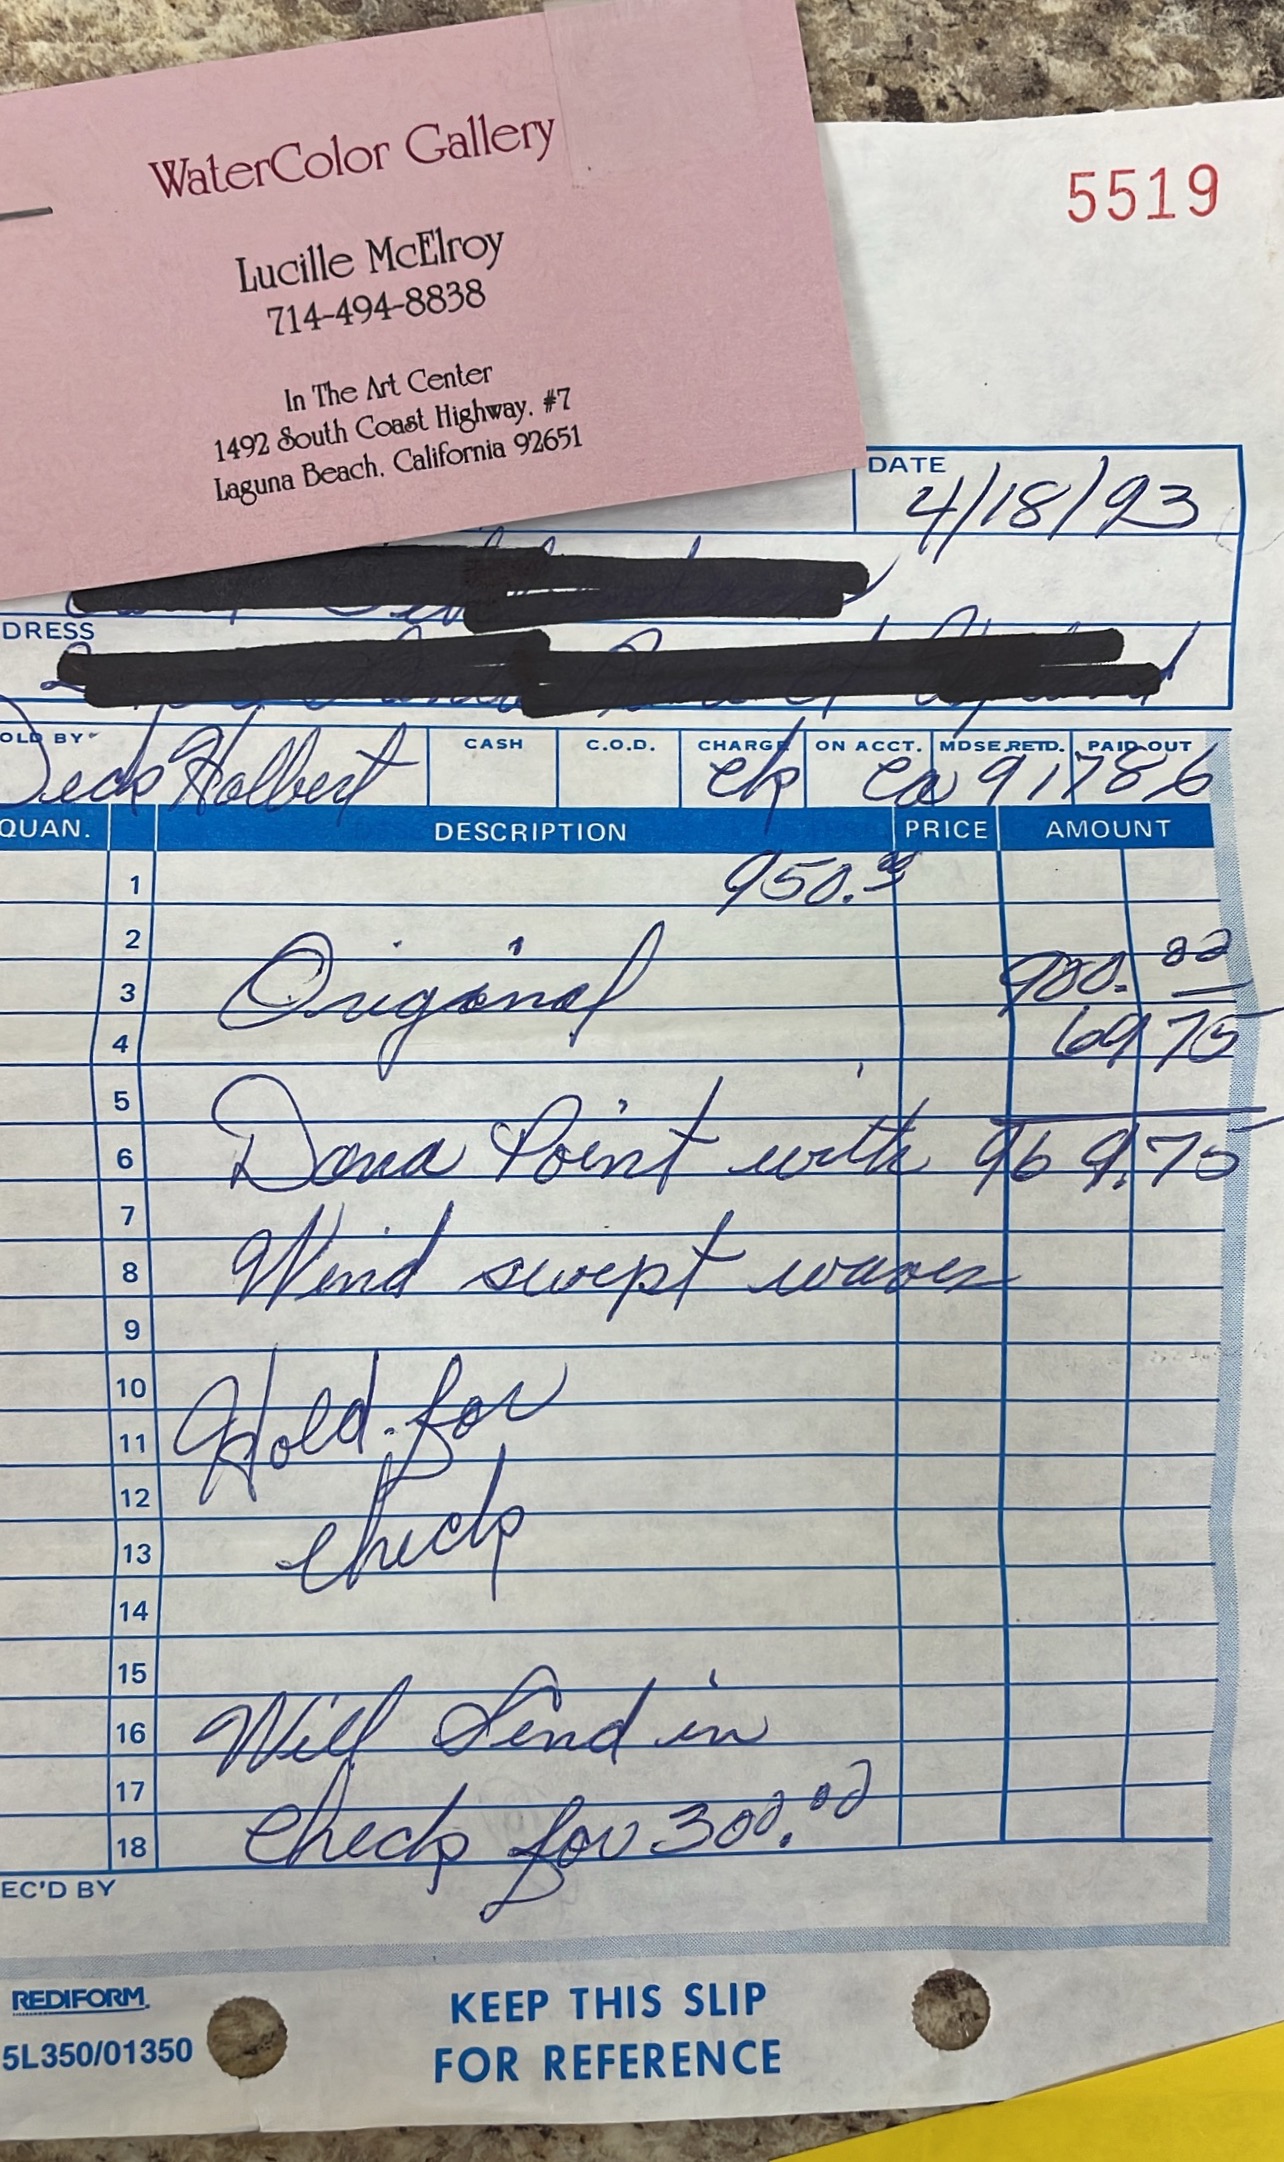 WaterColor Gallery
Lucille McElroy
714-494-8838
In The Art Center
1492 South Coast Highway, #7
Laguna Beach, California 92651
5519
DATE
4/18/93
DRESS
OLD BY CASH C.O.D. CHARGE ON ACCT. MDSE. RETD. PAID OUT
Holbert ck Ca 91786
QUAN. DESCRIPTION PRICE AMOUNT
1 950.00
2
3 Original 900.00
4 69 75
5
6 Dana Point with 969.75
7
8 Wind swept waves
9
10
11 Hold for
12
13 check
14
15
16 Will Send in
17
18 check for 300.00
EC'D BY
REDIFORM
5L350/01350
KEEP THIS SLIP
FOR REFERENCE